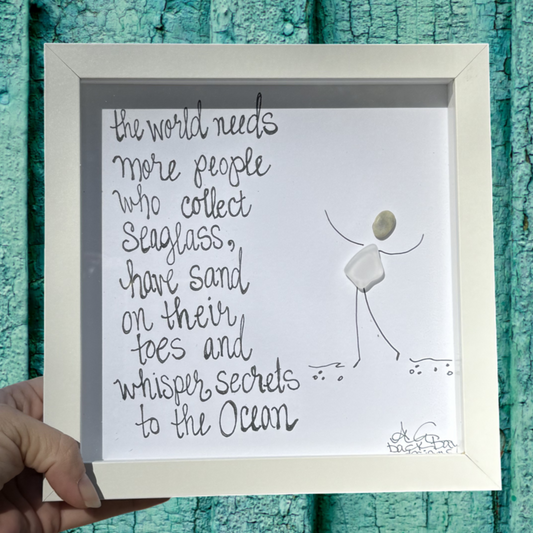 the world needs
more people
who collect
seaglass,
have sand
on their
toes and
whisper secrets
to the Ocean